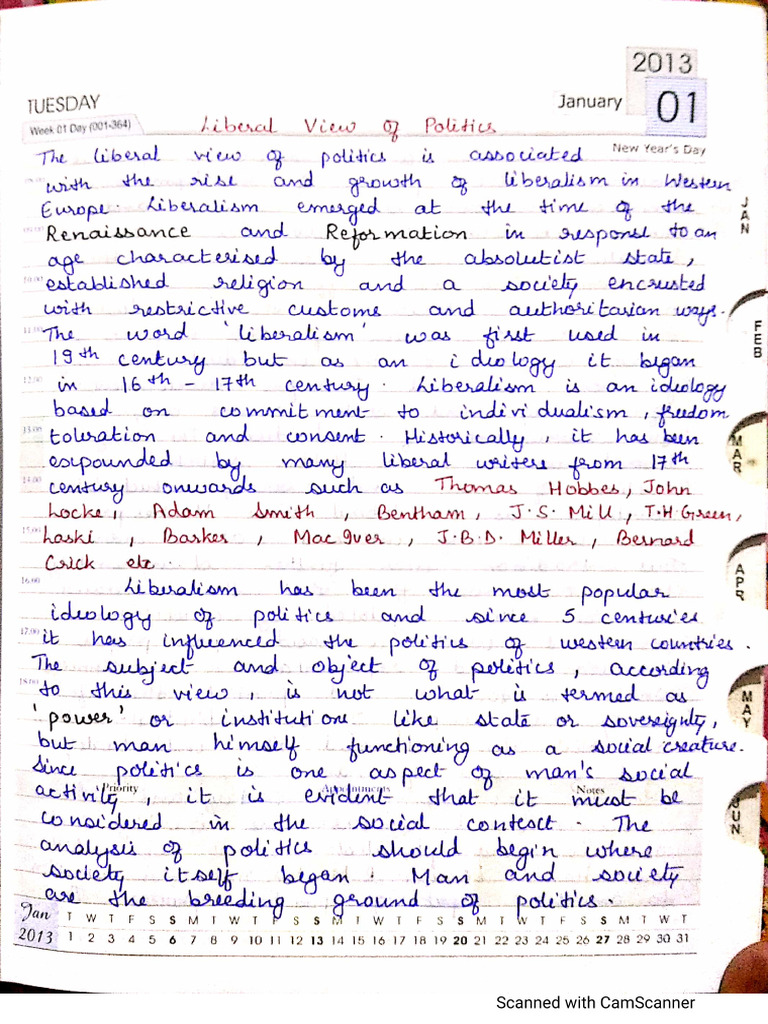 2013
TUESDAY
January 01
Week 01 Day (001-364)
Liberal View of Politics
New Year's Day
The liberal view of politics is associated
with the rise and growth of liberalism in Western
Europe. Liberalism emerged at the time of the
Renaissance and Reformation in response to an
age characterised by the absolutist state,
established religion and a society encrusted
with restrictive customs and authoritarian ways.
The word 'liberalism' was first used in
19th century but as an ideology it began
in 16th - 17th century. Liberalism is an ideology
based on commitment to individualism, freedom
toleration and consent. Historically, it has been
expounded by many liberal writers from 17th
century onwards such as Thomas Hobbes, John
Locke, Adam Smith, Bentham, J.S. Mill, T.H. Green,
Laski, Barker, Mac Iver, J.B.D. Miller, Bernard
Crick etc.
Liberalism has been the most popular
ideology of politics and since 5 centuries
it has influenced the politics of western countries.
The subject and object of politics, according
to this view, is not what is termed as
'power' or institutions like state or sovereignty,
but man himself functioning as a social creature.
Since politics is one aspect of man's social
Priority Appointments Notes
activity, it is evident that it must be
considered in the social context. The
analysis of politics should begin where
society itself began. Man and society
are the breeding ground of politics.
Jan T W T F S S M T W T F S S M T W T F S S M T W T F S S M T W T
2013 1 2 3 4 5 6 7 8 9 10 11 12 13 14 15 16 17 18 19 20 21 22 23 24 25 26 27 28 29 30 31
JAN
FEB
MAR
APR
MAY
JUN
Scanned with CamScanner